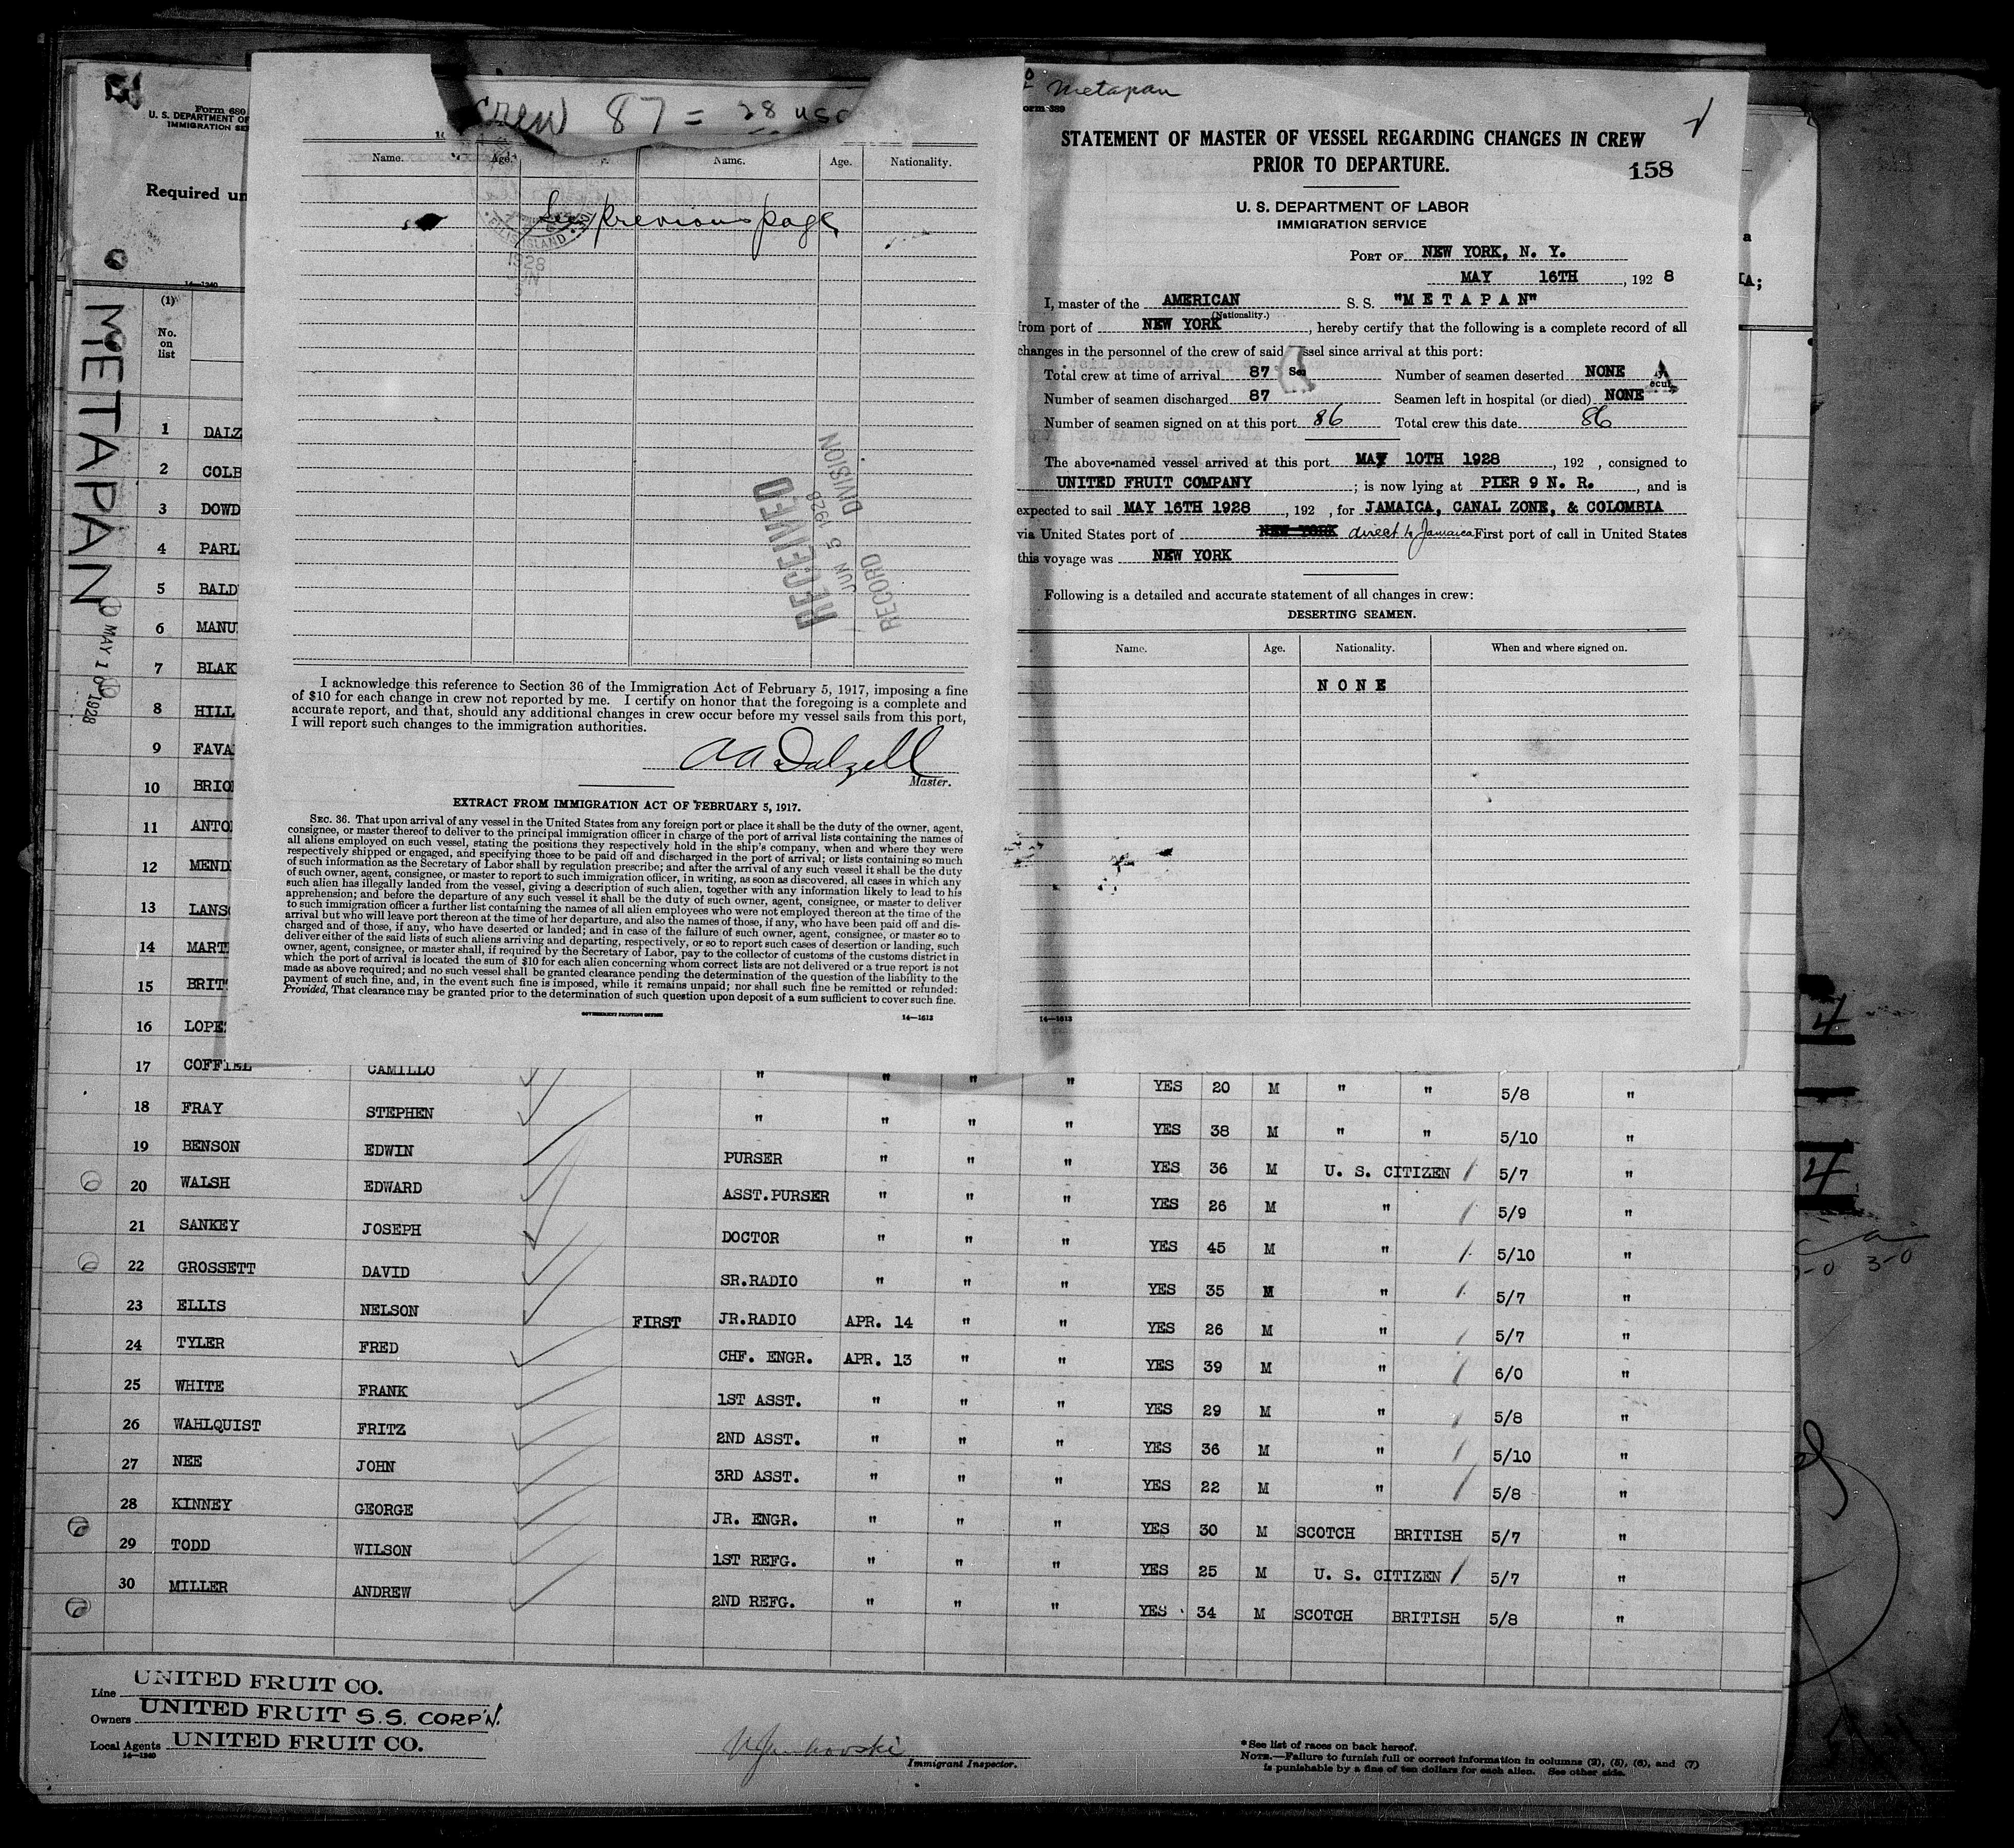 Form 680
U. S. DEPARTMENT OF
IMMIGRATION SE
Required un
14—1240
METAPAN
MAY 10 1928
(1)
No.
on
list
1 DALZ
2 COLB
3 DOWD
4 PARL
5 BALD
6 MANU
7 BLAK
8 HILL
9 FAVA
10 BRIO
11 ANTO
12 MEND
13 LANS
14 MART
15 BRIT
16 LOPE
crew 87 = 28 usc
Name. Age. Name. Age. Nationality.
See previous page
ELLIS ISLAND
1928
JUN
5
RECEIVED
JUN 5 1928
RECORD DIVISION
I acknowledge this reference to Section 36 of the Immigration Act of February 5, 1917, imposing a fine
of $10 for each change in crew not reported by me. I certify on honor that the foregoing is a complete and
accurate report, and that, should any additional changes in crew occur before my vessel sails from this port,
I will report such changes to the immigration authorities.
AA Dalzell
Master.
EXTRACT FROM IMMIGRATION ACT OF FEBRUARY 5, 1917.
SEC. 36. That upon arrival of any vessel in the United States from any foreign port or place it shall be the duty of the owner, agent,
consignee, or master thereof to deliver to the principal immigration officer in charge of the port of arrival lists containing the names of
all aliens employed on such vessel, stating the positions they respectively hold in the ship's company, when and where they were
respectively shipped or engaged, and specifying those to be paid off and discharged in the port of arrival; or lists containing so much
of such information as the Secretary of Labor shall by regulation prescribe; and after the arrival of any such vessel it shall be the duty
of such owner, agent, consignee, or master to report to such immigration officer, in writing, as soon as discovered, all cases in which any
such alien has illegally landed from the vessel, giving a description of such alien, together with any information likely to lead to his
apprehension; and before the departure of any such vessel it shall be the duty of such owner, agent, consignee, or master to deliver
to such immigration officer a further list containing the names of all alien employees who were not employed thereon at the time of the
arrival but who will leave port thereon at the time of her departure, and also the names of those, if any, who have been paid off and dis-
charged and of those, if any, who have deserted or landed; and in case of the failure of such owner, agent, consignee, or master so to
deliver either of the said lists of such aliens arriving and departing, respectively, or so to report such cases of desertion or landing, such
owner, agent, consignee, or master shall, if required by the Secretary of Labor, pay to the collector of customs of the customs district in
which the port of arrival is located the sum of $10 for each alien concerning whom correct lists are not delivered or a true report is not
made as above required; and no such vessel shall be granted clearance pending the determination of the question of the liability to the
payment of such fine, and, in the event such fine is imposed, while it remains unpaid; nor shall such fine be remitted or refunded:
Provided, That clearance may be granted prior to the determination of such question upon deposit of a sum sufficient to cover such fine.
GOVERNMENT PRINTING OFFICE 14—1613
Metapan
orm 689
STATEMENT OF MASTER OF VESSEL REGARDING CHANGES IN CREW
PRIOR TO DEPARTURE.
158
U. S. DEPARTMENT OF LABOR
IMMIGRATION SERVICE
PORT OF NEW YORK, N. Y.
MAY 16TH, 192 8
I, master of the AMERICAN S. S. "METAPAN"
(Nationality.)
from port of NEW YORK, hereby certify that the following is a complete record of all
changes in the personnel of the crew of said ssel since arrival at this port:
Total crew at time of arrival 87 Number of seamen deserted NONE
Number of seamen discharged 87 Seamen left in hospital (or died) NONE
Number of seamen signed on at this port 86 Total crew this date 86
The above-named vessel arrived at this port MAY 10TH 1928, 192 , consigned to
UNITED FRUIT COMPANY; is now lying at PIER 9 N. R., and is
expected to sail MAY 16TH 1928, 192 , for JAMAICA, CANAL ZONE, & COLOMBIA
via United States port of NEW YORK direct to Jamaica First port of call in United States
this voyage was NEW YORK
Following is a detailed and accurate statement of all changes in crew:
DESERTING SEAMEN.
Name. Age. Nationality. When and where signed on.
NONE
14—1613
17 COFFIEL CAMILLO " " " " YES 20 M " " 5/8 "
18 FRAY STEPHEN " " " " YES 38 M " " 5/10 "
19 BENSON EDWIN PURSER " " " YES 36 M U. S. CITIZEN 5/7 "
20 WALSH EDWARD ASST.PURSER " " " YES 26 M " 5/9 "
21 SANKEY JOSEPH DOCTOR " " " YES 45 M " 5/10 "
22 GROSSETT DAVID SR.RADIO " " " YES 35 M " 5/7 "
23 ELLIS NELSON FIRST JR.RADIO APR. 14 " " YES 26 M " 5/7 "
24 TYLER FRED CHF. ENGR. APR. 13 " " YES 39 M " 6/0 "
25 WHITE FRANK 1ST ASST. " " " YES 29 M " 5/8 "
26 WAHLQUIST FRITZ 2ND ASST. " " " YES 36 M " 5/10 "
27 NEE JOHN 3RD ASST. " " " YES 22 M " 5/8 "
28 KINNEY GEORGE JR. ENGR. " " " YES 30 M SCOTCH BRITISH 5/7 "
29 TODD WILSON 1ST REFG. " " " YES 25 M U. S. CITIZEN 5/7 "
30 MILLER ANDREW 2ND REFG. " " " YES 34 M SCOTCH BRITISH 5/8 "
Line UNITED FRUIT CO.
Owners UNITED FRUIT S.S. CORP'N.
Local Agents UNITED FRUIT CO.
14—1240
Immigrant Inspector.
*See list of races on back hereof.
NOTE.—Failure to furnish full or correct information in columns (2), (5), (6), and (7)
is punishable by a fine of ten dollars for each alien. See other side.